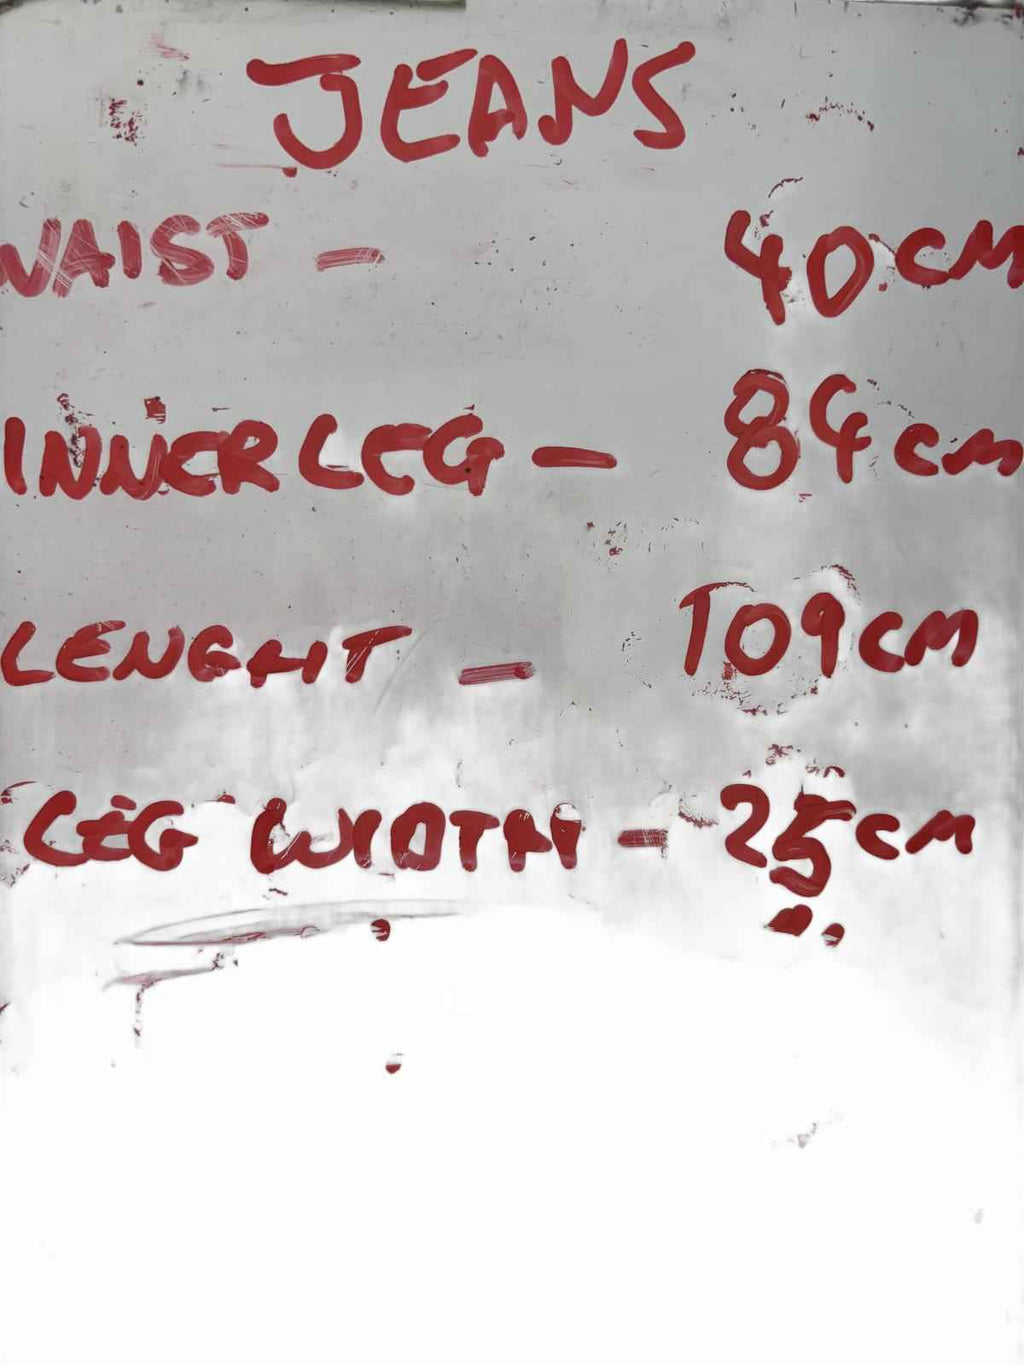 JEANS
WAIST - 40 CM
INNER LEG - 84 CM
LENGHT - 109 CM
LEG WIDTH - 25 CM